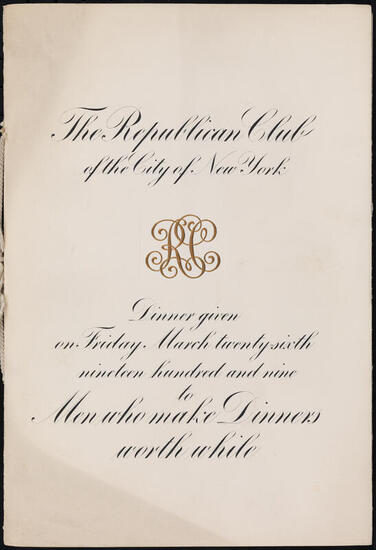 The Republican Club
of the City of New York
RC
Dinner given
on Friday March twenty-sixth
nineteen hundred and nine
to
Men who make Dinners
worth while